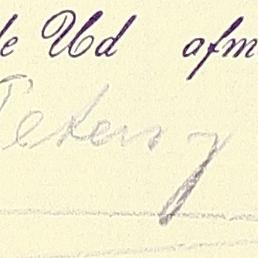 de Ud afm
Petersy